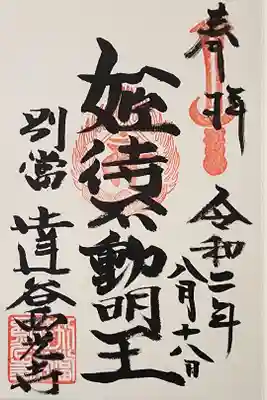 奉拝
令和二年
八月十八日
姫待不動明王
別當
達谷西光寺